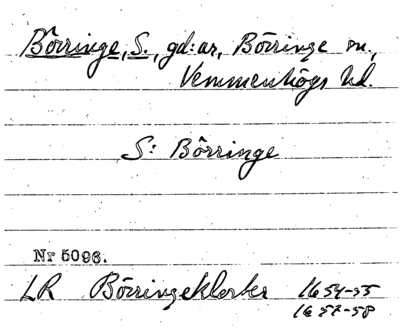 Börringe, S., gd:ar, Börringe sn.,
Vemmenhögs hd.
S: Börringe
Nr 5096.
LR Börringekloster 1654-55
1657-58